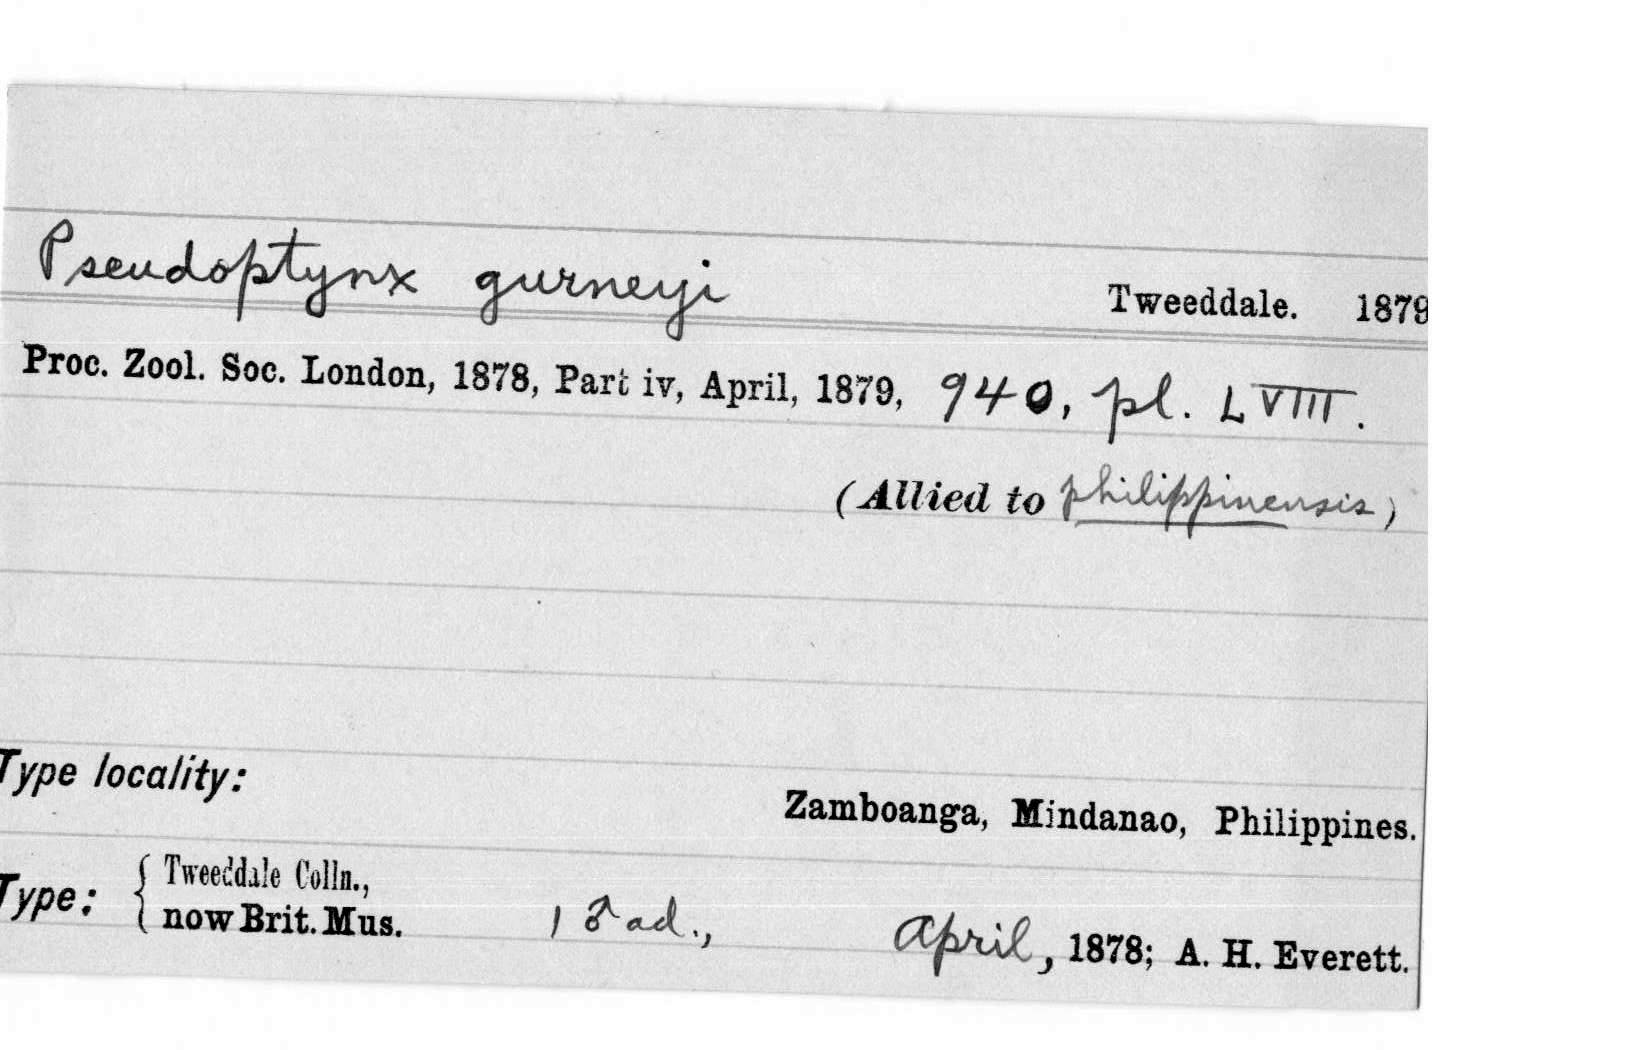 Pseudoptynx gurneyi Tweeddale. 1879
Proc. Zool. Soc. London, 1878, Part iv, April, 1879, 940, pl. LVIII.
(Allied to philippinensis)
Type locality:
Zamboanga, Mindanao, Philippines.
Type: { Tweeddale Colln.,
now Brit. Mus. 1 ♂ ad., April, 1878; A. H. Everett.